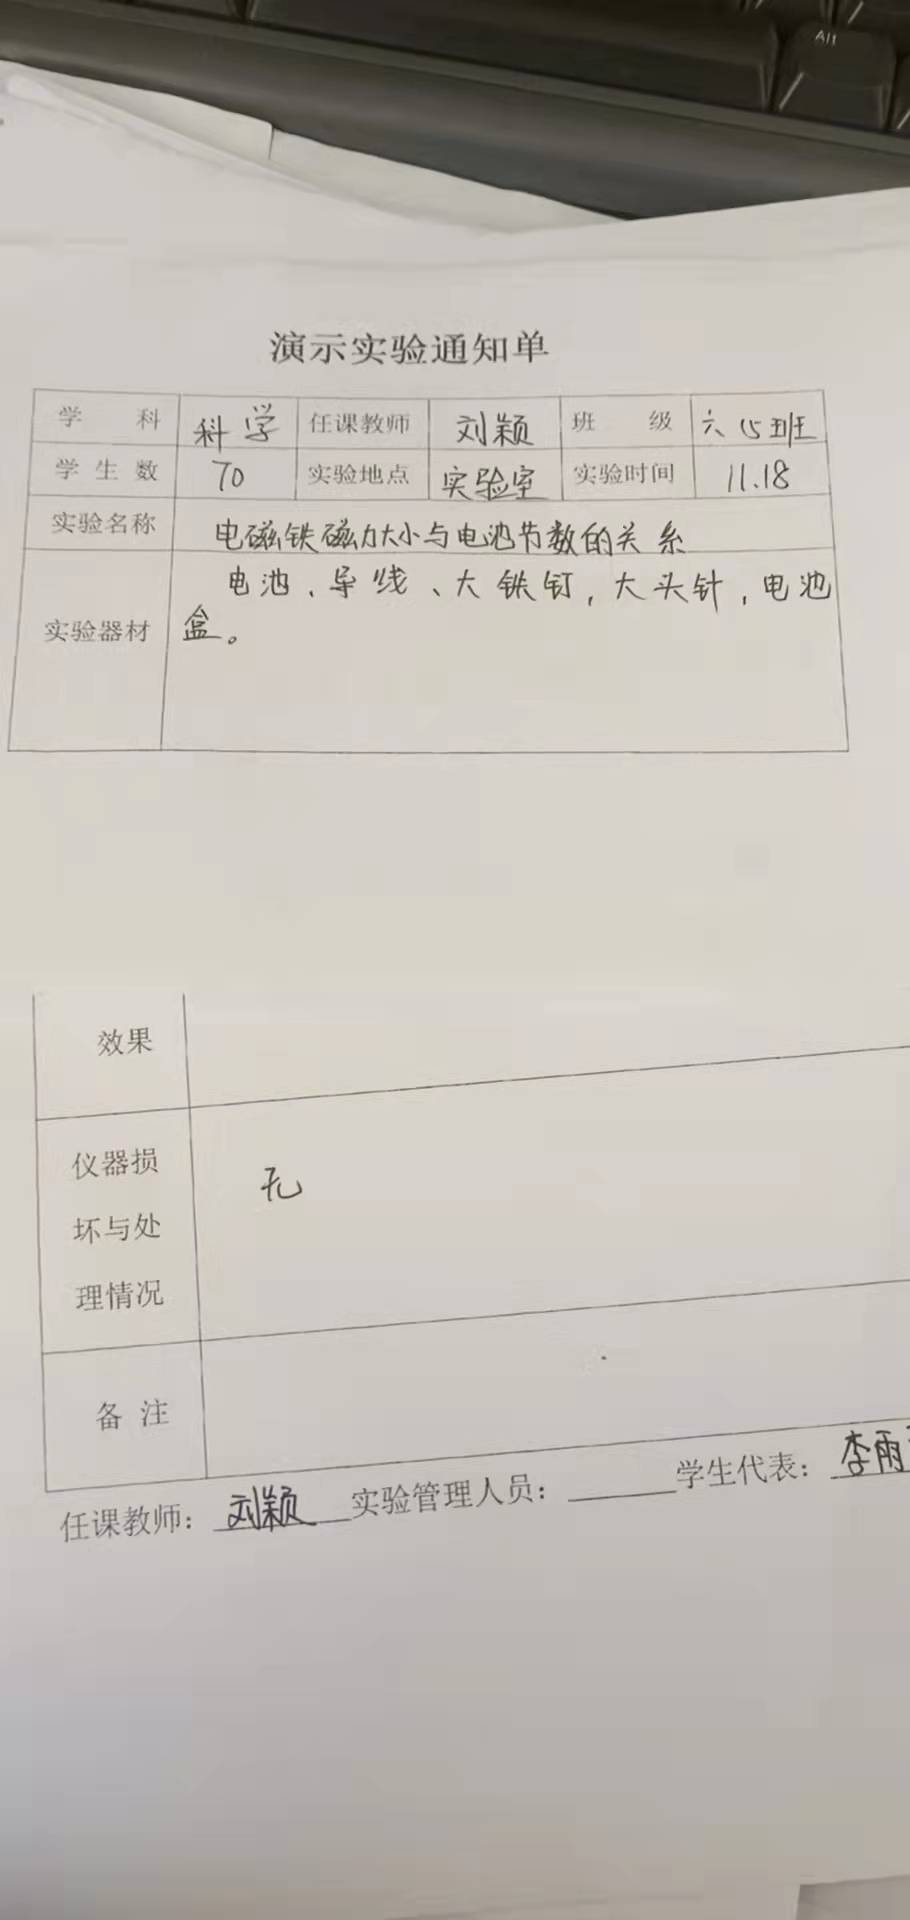 Alt
演示实验通知单
学 科 科学 任课教师 刘颖 班 级 六(5)班
学生数 70 实验地点 实验室 实验时间 11.18
实验名称 电磁铁磁力大小与电池节数的关系
实验器材 电池、导线、大铁钉，大头针，电池
盒。
效果
仪器损
坏与处
理情况
无
备 注
任课教师：刘颖 实验管理人员： 学生代表：李雨